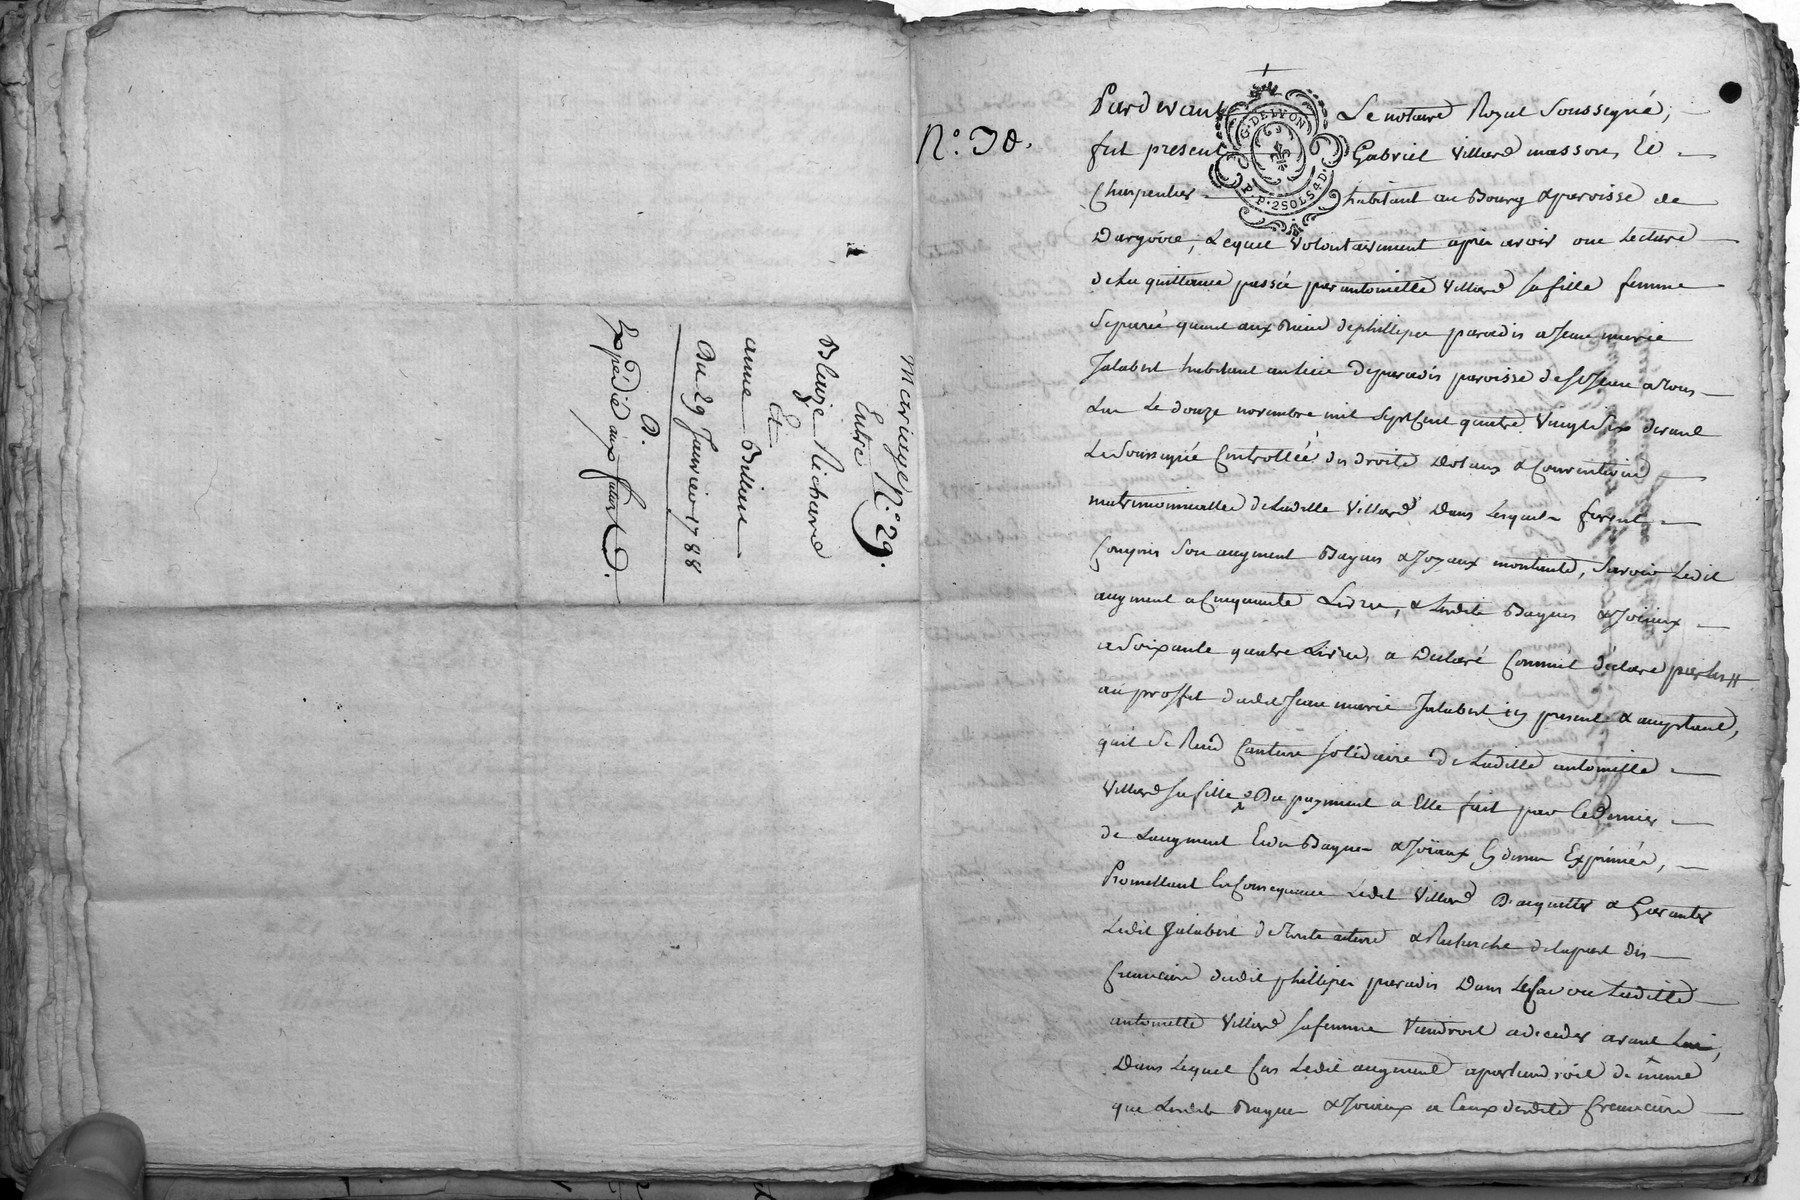 Mariage N.° 29.
Entre
Blaize Richard
Et
anne Billiere
Du 29 Janvier 1788
D.
Expédié aux futurs D.
N.° 30.
G. DE LYON
P. P. 2 SOLS 4 D.
Pardevant Le notaire Royal Soussigné,
fut présent Gabriel Villard masson, Et
Charpentier habitant au Bourg & paroisse de
Dargoire, Lequel volontairement après avoir oui Lecture
de La quittance passée par antoinette Villard sa fille femme
Separée quant aux Biens de phillipe paradis a Jean marie
Jalabert habitant au lieu de paradis paroisse de St Jean a Tous
Lui Le douze novembre mil Sept Cent quatre Vingt Six devant
Le Soussigné Controllée, des droits Dotaux & Conventions
matrimonialles de Ladite Villard Dans Lesquels furent
Compris Son augment Bagues & Joyaux montants, Savoir Ledit
augment a Cinquante Livres, & Lesdits Bagues & Joiaux
a Soixante quatre Livres, a Déclaré Comme il déclare par les
au proffit dudit Jean marie Jalabert icy present & acceptant,
quil Se Rend Caution Solidaire de Ladite antoinette
Villard sa fille Du payment a Elle fait par Ce Dernier
de Laugment Et des Bagues & Joiaux Cy dessus Exprimés,
Promettant En Consequence Ledit Villard D'acquitter & Garantir
Ledit Jalabert de Toute attente & Recherche de la part des
Creanciers dudit phillipe paradis Dans Le Cas ou Ladite
antoinette Villard sa femme Viendroit a deceder avant Lui,
Dans Lequel Cas Ledit augment apartiendroit de même
que Lesdits Bagues & Joiaux a Ceux desdits Creanciers